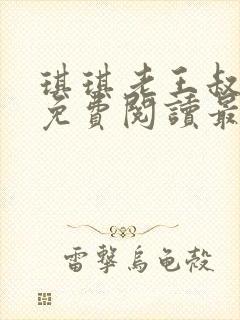 琪琪老王叔
免費閱讀最
雷擊烏龜殼